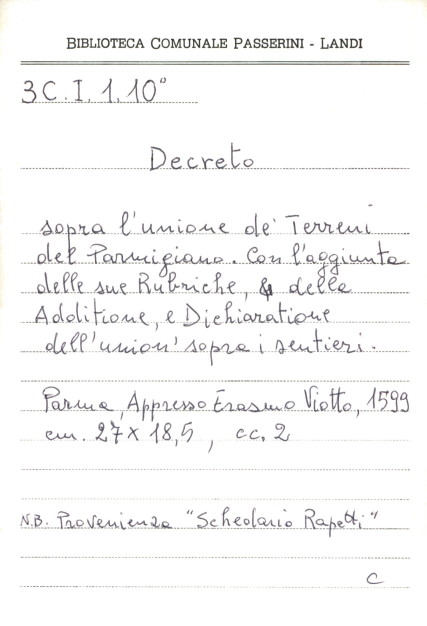 BIBLIOTECA COMUNALE PASSERINI - LANDI
3 C. I. 1. 10°
Decreto
sopra l'unione de' Terreni
del Parmigiano. Con l'aggiunta
delle sue Rubriche, & della
Additione, e Dichiaratione
dell'union' sopra i sentieri.
Parma, Appresso Erasmo Viotto, 1599
cm. 27 x 18,5, cc. 2
N.B. Provenienza "Schedario Rapetti"
C